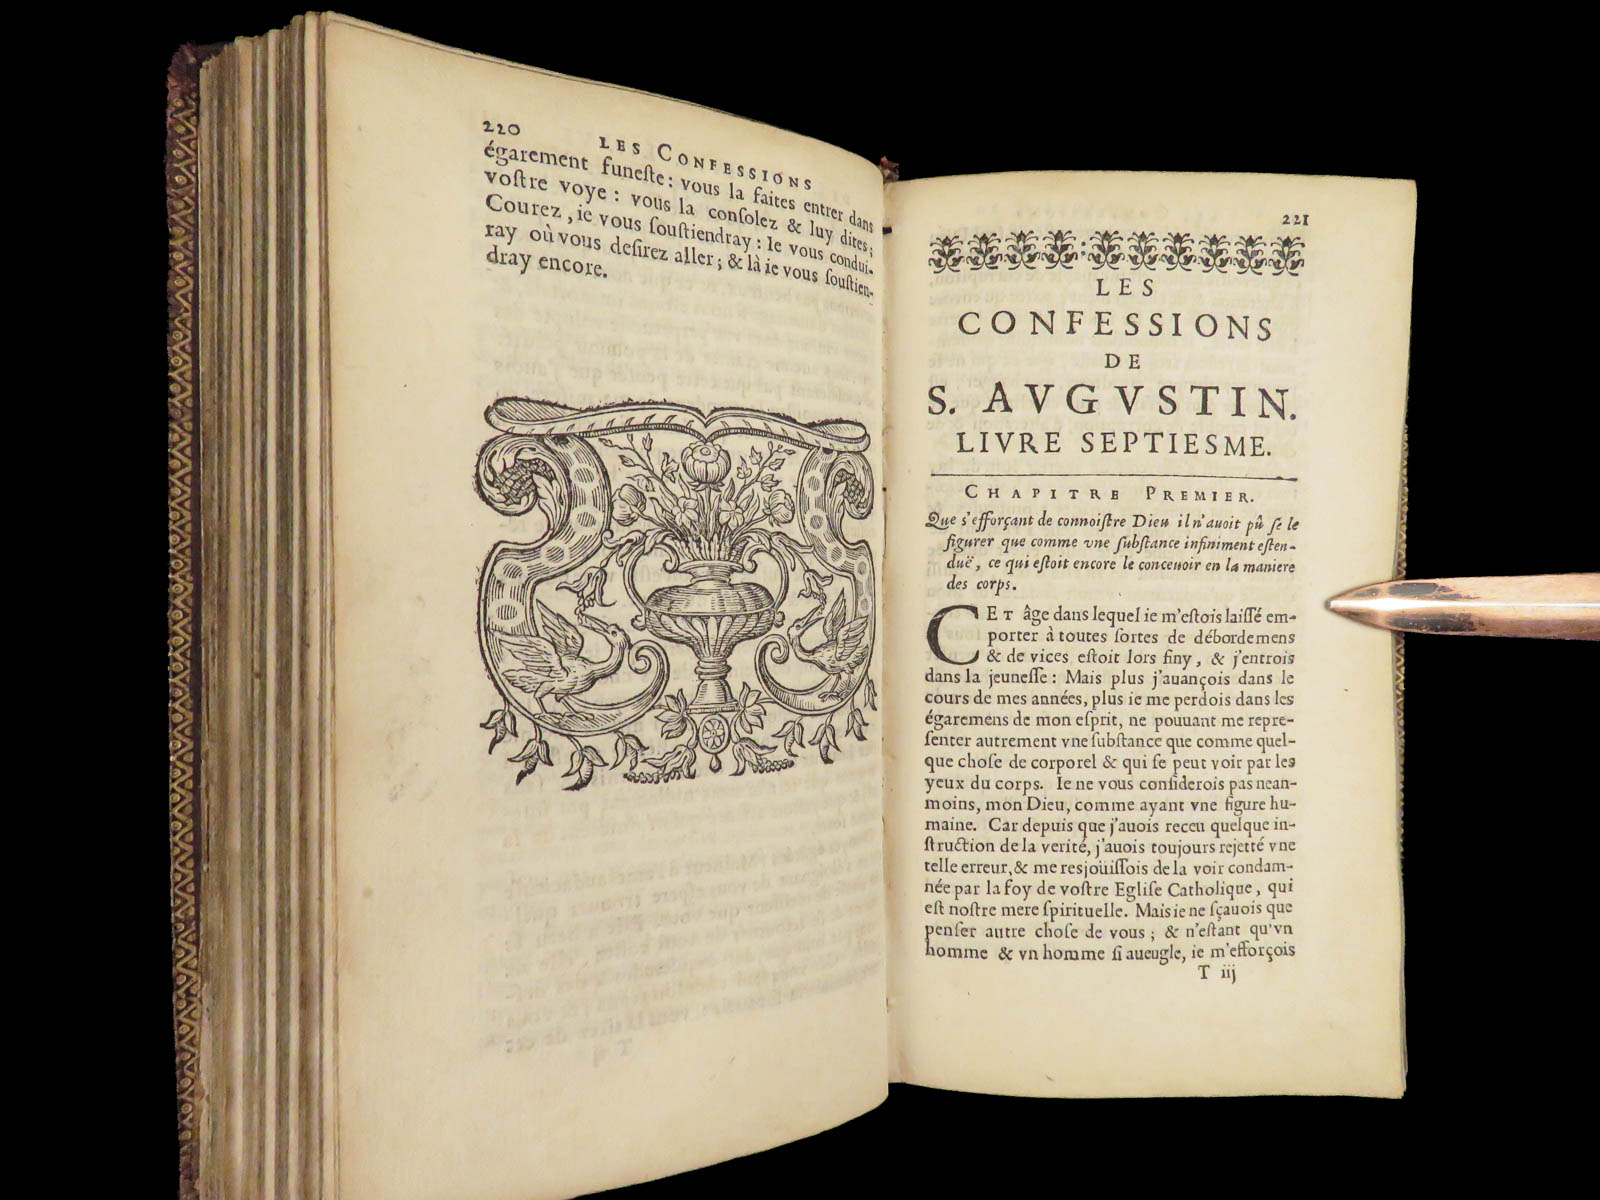 220
LES CONFESSIONS
égarement funeſte : vous la faites entrer dans
voſtre voye : vous la conſolez & luy dites ;
Courez, ie vous ſouſtiendray : Ie vous condui-
ray où vous deſirez aller ; & là ie vous ſouſtien-
dray encore.
221
LES
CONFESSIONS
DE
S. AVGVSTIN.
LIVRE SEPTIESME.
CHAPITRE PREMIER.
Que s'efforçant de connoiſtre Dieu il n'auoit pû ſe le
figurer que comme vne ſubſtance infiniment eſten-
duë, ce qui eſtoit encore le conceuoir en la maniere
des corps.
CET âge dans lequel ie m'eſtois laiſſé em-
porter à toutes ſortes de débordemens
& de vices eſtoit lors finy, & j'entrois
dans la jeuneſſe : Mais plus j'auançois dans le
cours de mes années, plus ie me perdois dans les
égaremens de mon eſprit, ne pouuant me repre-
ſenter autrement vne ſubſtance que comme quel-
que choſe de corporel & qui ſe peut voir par les
yeux du corps. Ie ne vous conſiderois pas nean-
moins, mon Dieu, comme ayant vne figure hu-
maine. Car depuis que j'auois receu quelque in-
ſtruction de la verité, j'auois toujours rejetté vne
telle erreur, & me resjoüiſſois de la voir condam-
née par la foy de voſtre Egliſe Catholique, qui
eſt noſtre mere ſpirituelle. Mais ie ne ſçauois que
penſer autre choſe de vous ; & n'eſtant qu'vn
homme & vn homme ſi aueugle, ie m'efforçois
T iij